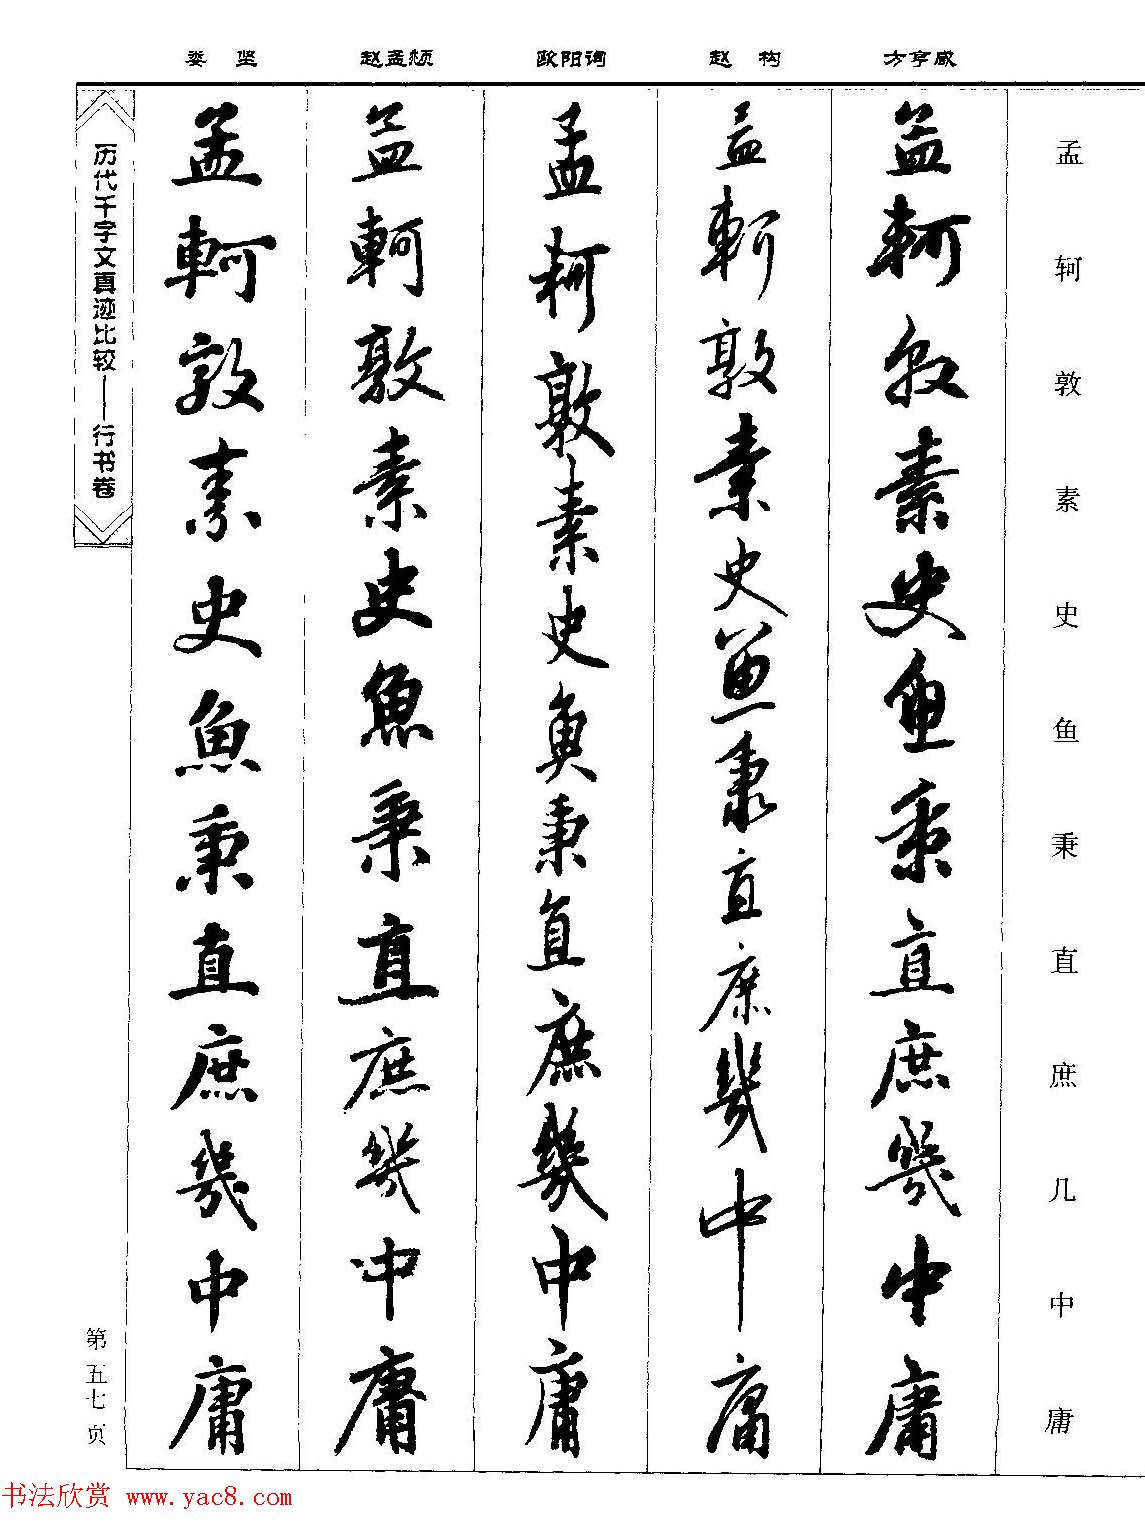 娄 坚 赵孟頫 欧阳询 赵 构 方亨咸
孟轲敦素史鱼秉直庶几中庸
孟軻敦素史魚秉直庶幾中庸
孟軻敦素史魚秉直庶幾中庸
孟軻敦素史魚秉直庶幾中庸
孟軻敦素史魚秉直庶幾中庸
孟軻敦素史魚秉直庶幾中庸
历代千字文真迹比较——行书卷
第五七页
书法欣赏 www.yac8.com